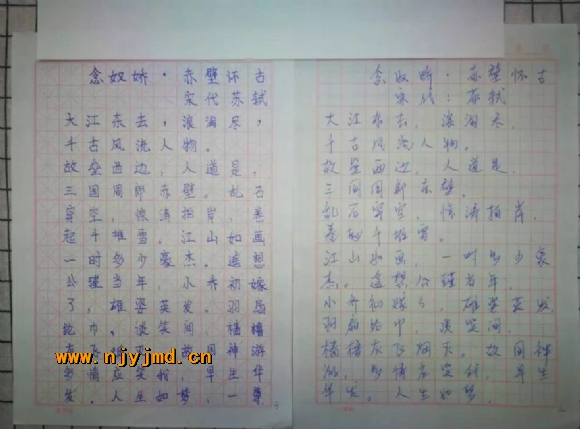 念奴娇·赤壁怀古
宋代苏轼
大江东去,浪淘尽,
千古风流人物。
故垒西边,人道是,
三国周郎赤壁。乱石
穿空,惊涛拍岸,卷
起千堆雪。江山如画
一时多少豪杰。遥想
公瑾当年,小乔初嫁
了,雄姿英发。羽扇
纶巾。谈笑间,樯橹
故国神游
多情应笑我,早生华
发。人生如梦,一尊
念奴娇·赤壁怀古
宋代:苏轼
大江东去,浪淘尽,
千古风流人物。
故垒西边,人道是,
三国周郎赤壁。
乱石穿空,惊涛拍岸,
卷起千堆雪。
江山如画,一时多少豪
杰。遥想公瑾当年,
小乔初嫁了,雄姿英发,
羽扇纶巾,谈笑间,
樯橹灰飞烟灭。故国神
游,多情应笑我,早生
华发。人生如梦,
www.njyjmd.cn